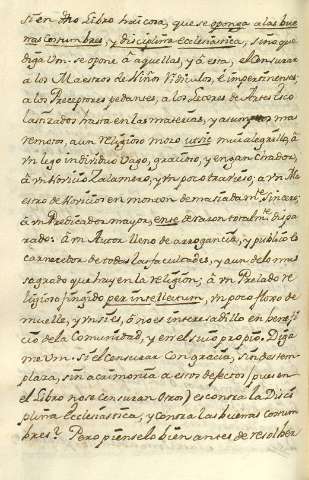 si en dho Libro hai cosa, que se oponga a las bue
nas costumbres, y disciplina eclesiastica, sino que
diga Vm. se opone à aquellas, y à esta, el censurar
a los Maestros de Niños ridiculos, è impertinentes;
a los Preceptores pedantes, a los Lectores de Artes esco
lastizados hasta en las materias, y asumptos mas
remotos, a un religioso mozo mui alegrillo, à
vn lego individuo vago, gracioso, y engañador,
à vn Novicio zalamero, y vn poco travieso; a vn Ma
estro de Novicios en monton demasiadamte sincero;
à vn Predicador mayor, de razon totalmte dispa
rado: à vn Autor lleno de arrogancia, y publico es
carnecedor de todas las facultades, y aun de lo mas
sagrado que hay en la religion; à vn Prelado re
ligioso fingido per intellectum, vn poco floxo de
muelle, y vn si es, ò no es insensadillo en benefi
cio de la Comunidad, y en el suio propio. Diga
me Vm. si el censurar con gracia, sin destem
planza, sin acrimonia a estos defectos (pues en
el Libro no se censuran otros) es contra la Disci
plina eclesiastica, y contra las buenas costum
bres? Pero pienselo bien antes de resolber